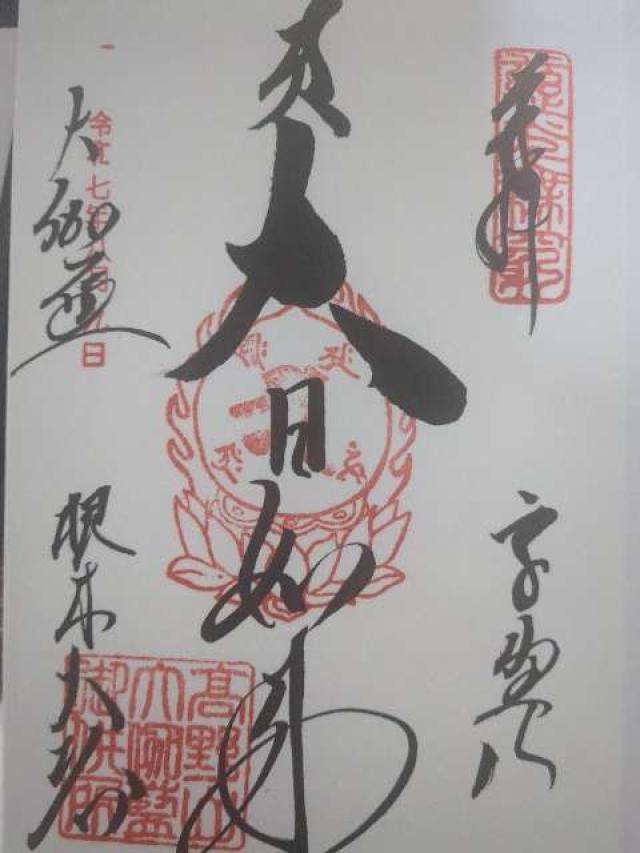 奉拝
高野山
大日如来
大伽藍
根本大塔
令和七年
日
高野山
大伽藍
御供所